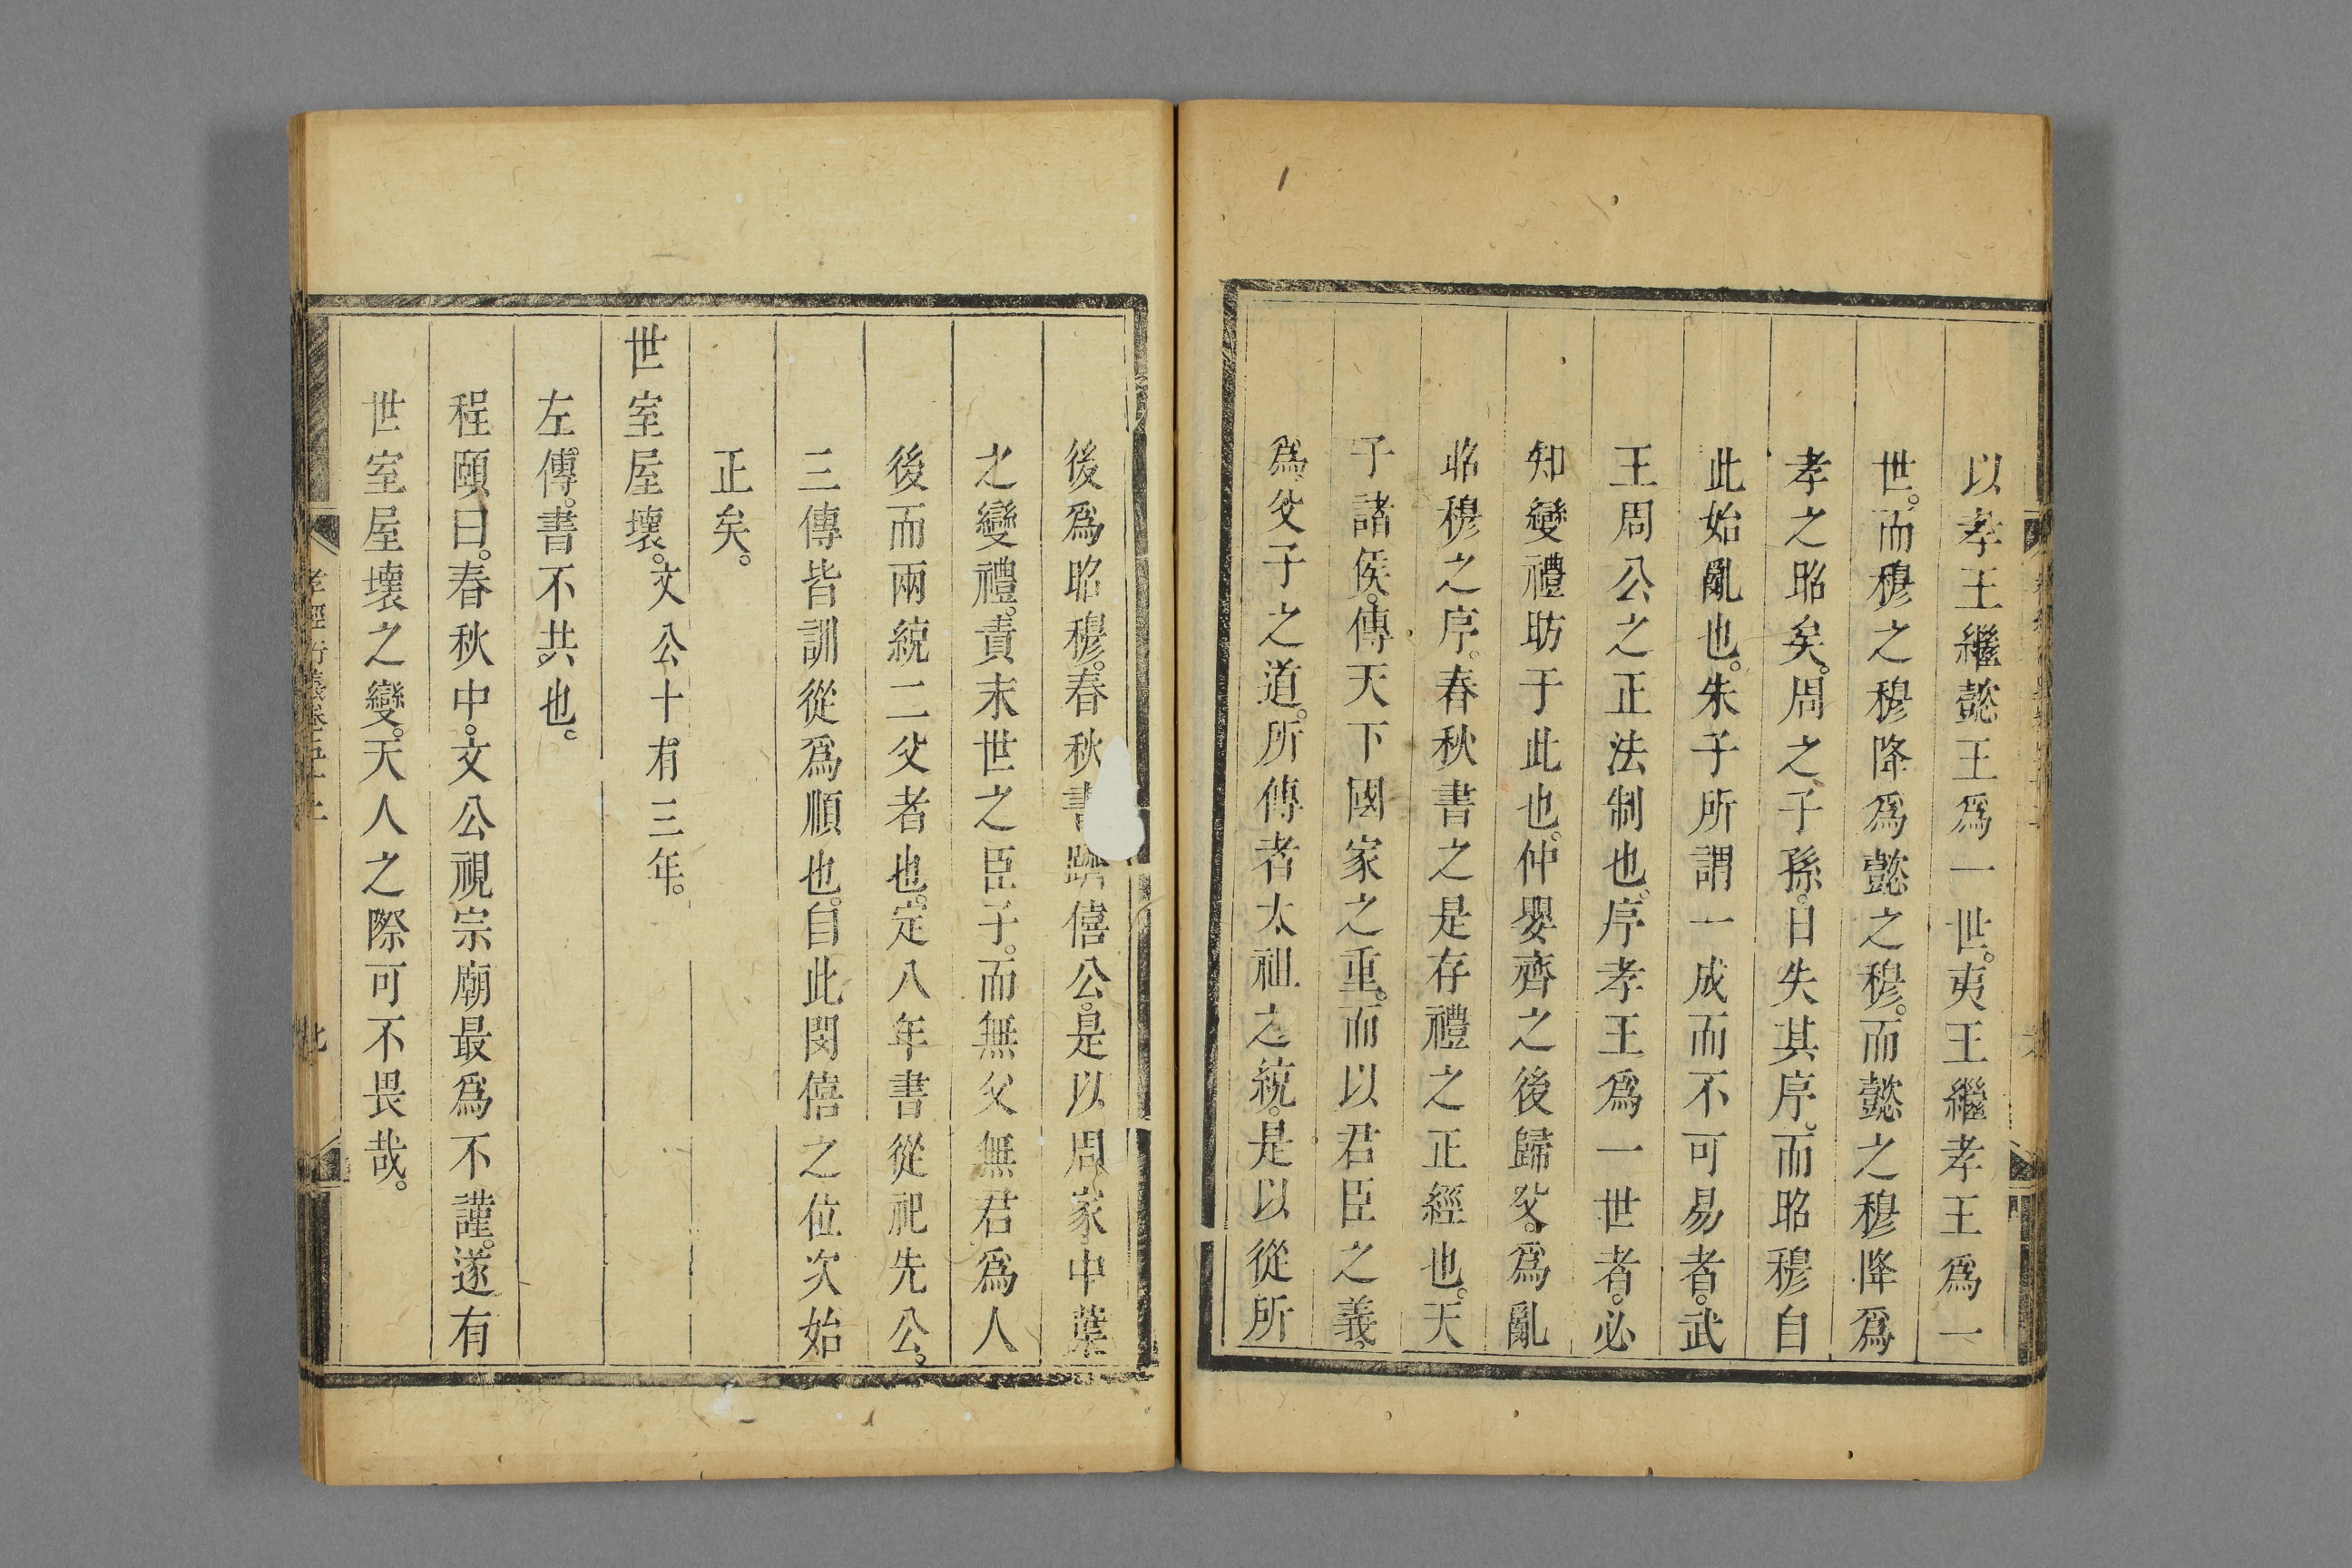 以孝王繼懿王爲一世。夷王繼孝王爲一
世。而穆之穆降爲懿之穆。而懿之穆降爲
孝之昭矣。周之子孫。日失其序。而昭穆自
此始亂也。朱子所謂一成而不可易者。武
王周公之正法制也。序孝王爲一世者。必
知變禮昉于此也。仲嬰齊之後歸父。爲亂
昭穆之序。春秋書之是存禮之正經也。天
子諸侯。傳天下國家之重。而以君臣之義。
爲父子之道。所傳者太祖之統。是以從所
後爲昭穆。春秋書躋僖公。是以周家中葉
之變禮。責末世之臣子。而無父無君爲人
後而兩統二父者也。定八年書從祀先公。
三傳皆訓從爲順也。自此閔僖之位次始
正矣。
世室屋壞。文公十有三年。
左傳。書不共也。
程頤曰。春秋中。文公視宗廟最爲不謹。遂有
世室屋壞之變。天人之際可不畏哉。